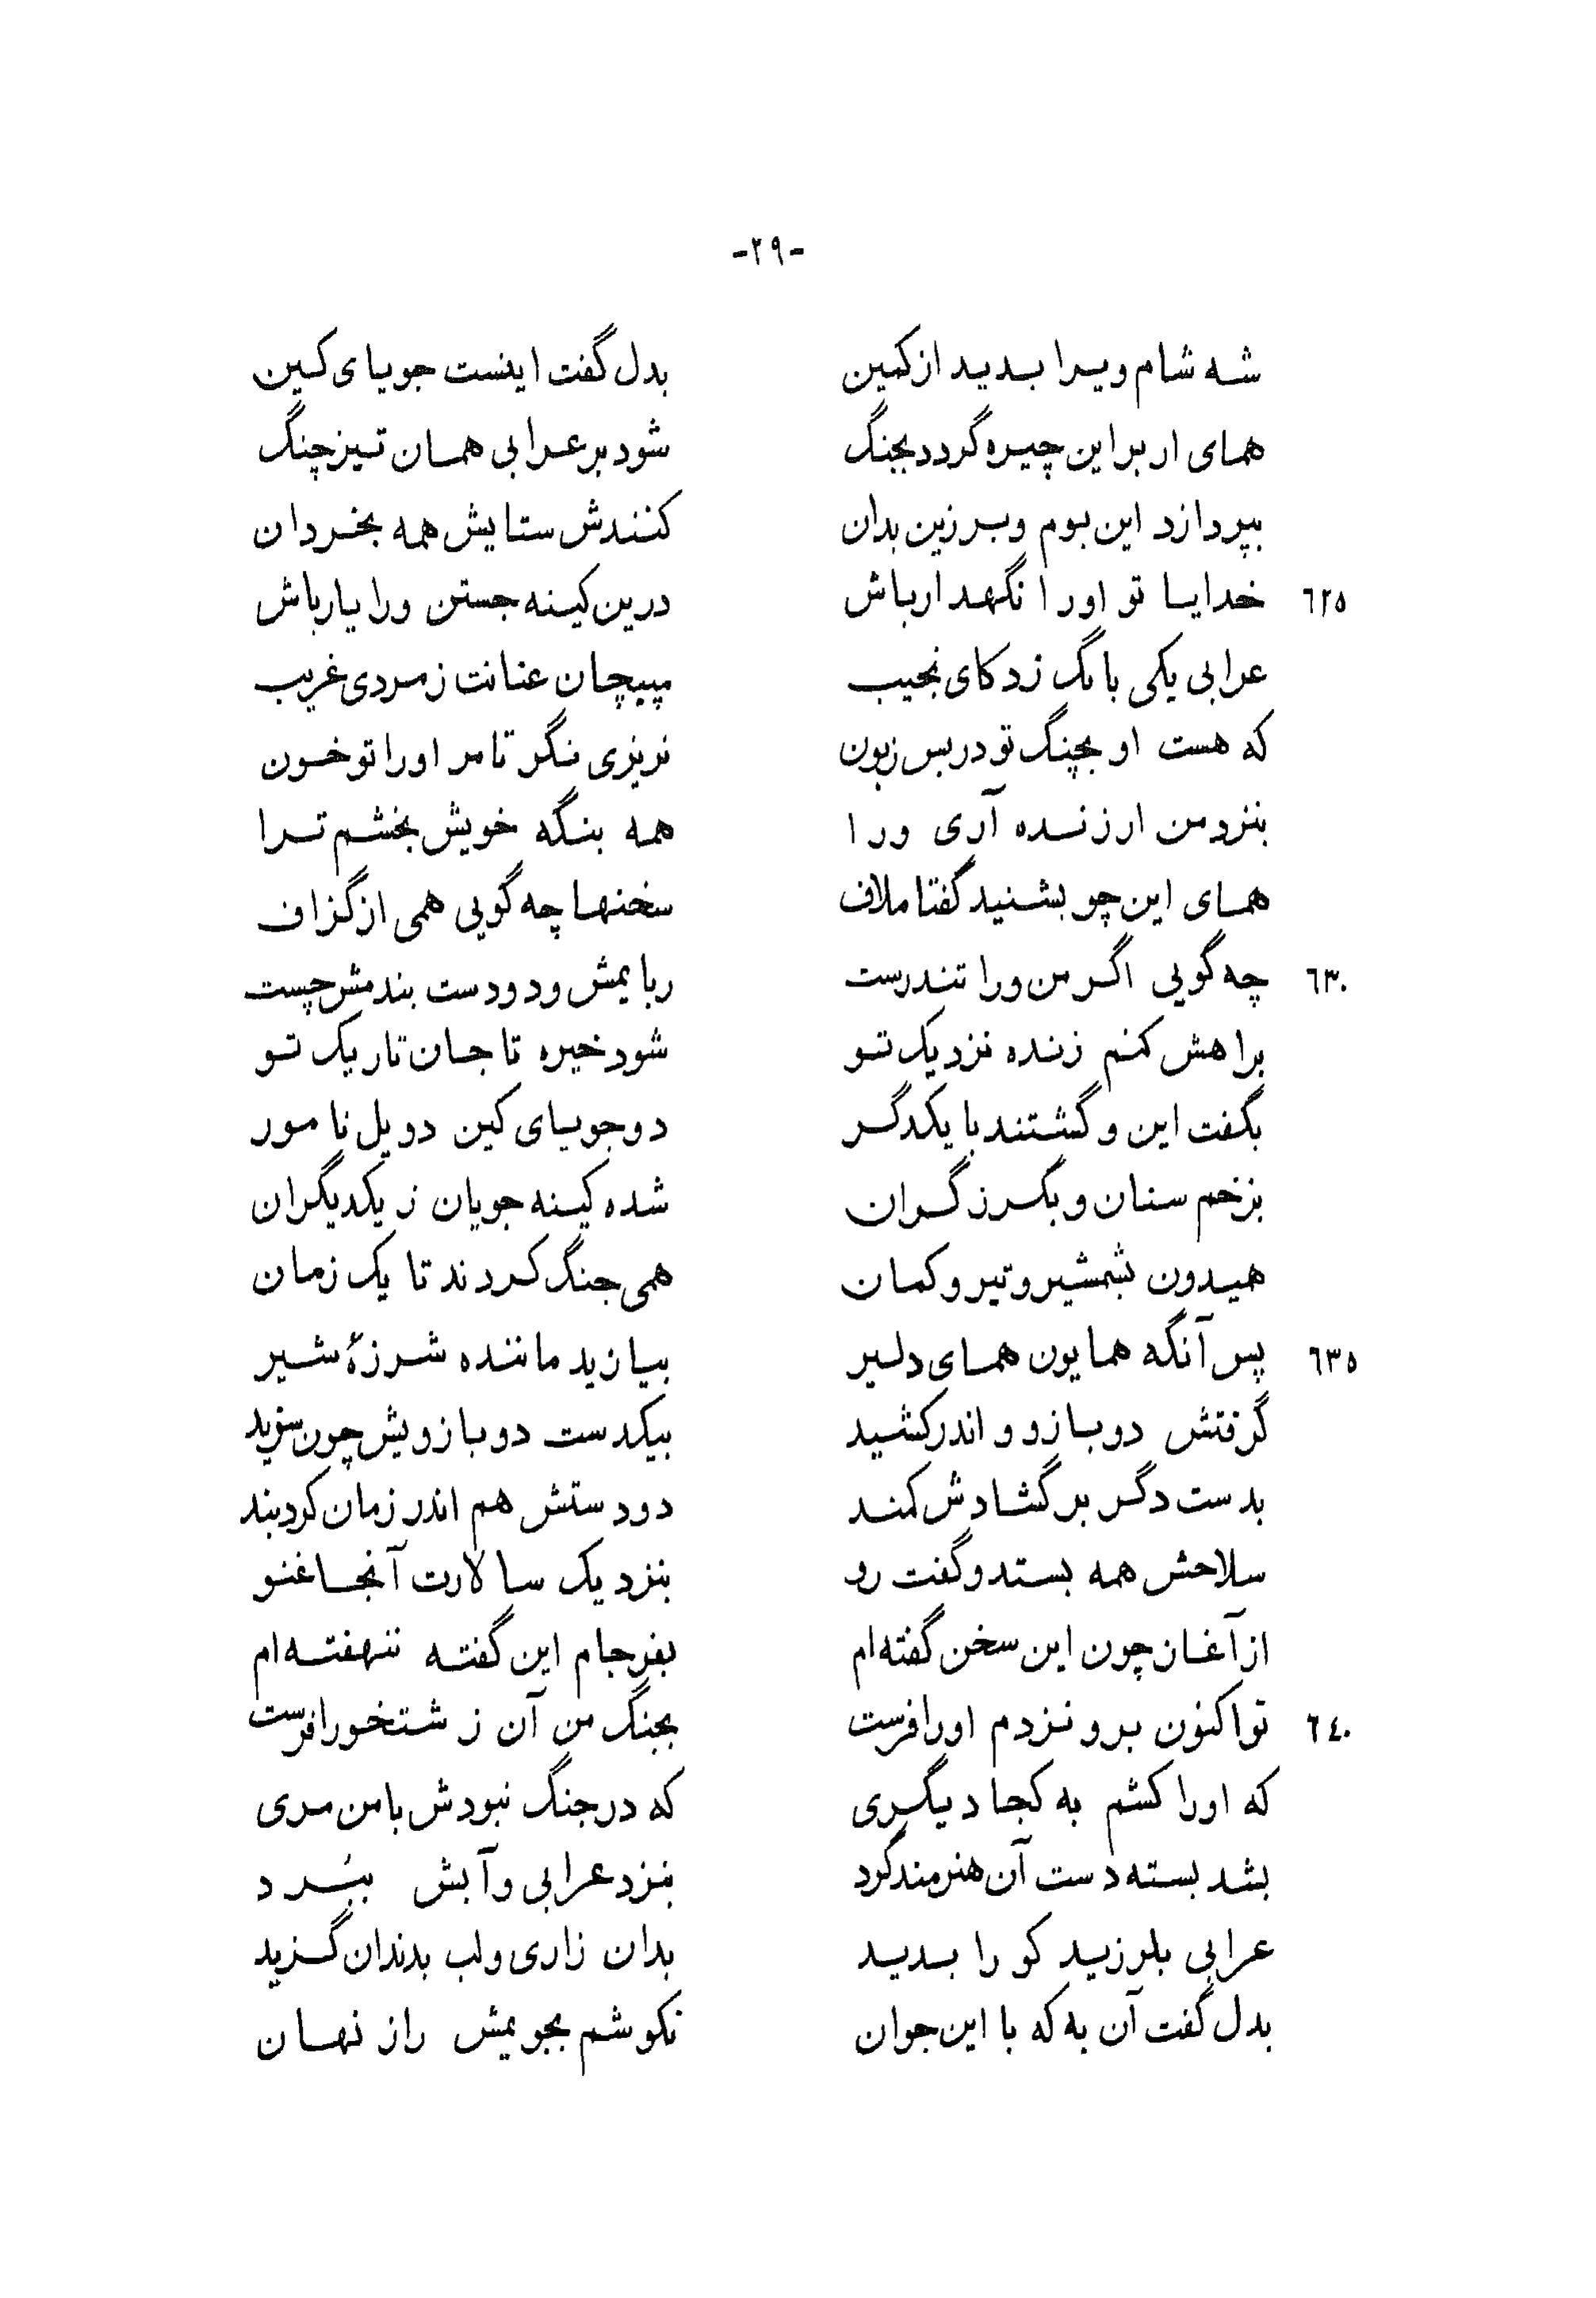 -۲۹-
شه شام ویرا بدید از کمین بدل گفت اینست جویای کین
همای ار بر این چیره گردد بجنگ شود بر عرابی همان تیز چنگ
بپردازد این بوم وبر زین بدان کنندش ستایش همه بخردان
٦٢٥ خدایا تو اورا نگهدار باش درین کینه جستن ورا یار باش
عرابی یکی بانگ زد کای نجیب مپیچان عنانت ز مردی غریب
که هست او بچنگ تو در بس زبون نریزی نگر تا مر اورا تو خون
بنزد من ار زنده آری ورا همه بنگه خویش بخشم ترا
همای این چو بشنید گفتا ملاف سخنها چه گویی همی از گزاف
٦٣٠ چه گویی اگر من ورا تندرست ربایمش ودو دست بندمش چست
براهش کنم زنده نزدیک تو شود خیره تا جان تاریک تو
بگفت این و گشتند با یکدگر دو جویای کین دو یل نامور
بزخم سنان و بگرز گران شده کینه جویان ز یکدیگران
همیدون بشمشیر و تیر و کمان همی جنگ کردند تا یک زمان
٦٣٥ پس آنگه همایون همای دلیر بیازید ماننده شرزهٔ شیر
گرفتش دو بازو و اندر کشید بیکدست دو بازویش چون سزید
بدست دگر بر گشادش کمند دو دستش هم اندر زمان کرد بند
سلاحش همه بستد و گفت رو بنزدیک سالارت آنجا غنو
از آغاز چون این سخن گفته‌ام بفرجام این گفته ننهفته‌ام
٦٤٠ تو اکنون برو نزدم اورا فرست بجنگ من آن زشتخورا فرست
که اورا کشم به کجا دیگری که در جنگ نبودش با من مری
بشد بسته دست آن هنرمند گرد بنزد عرابی و آبش ببُرد
عرابی بلرزید کو را بدید بدان زاری و لب بدندان گزید
بدل گفت آن به که با این جوان نکوشم بجویمش راز نهان